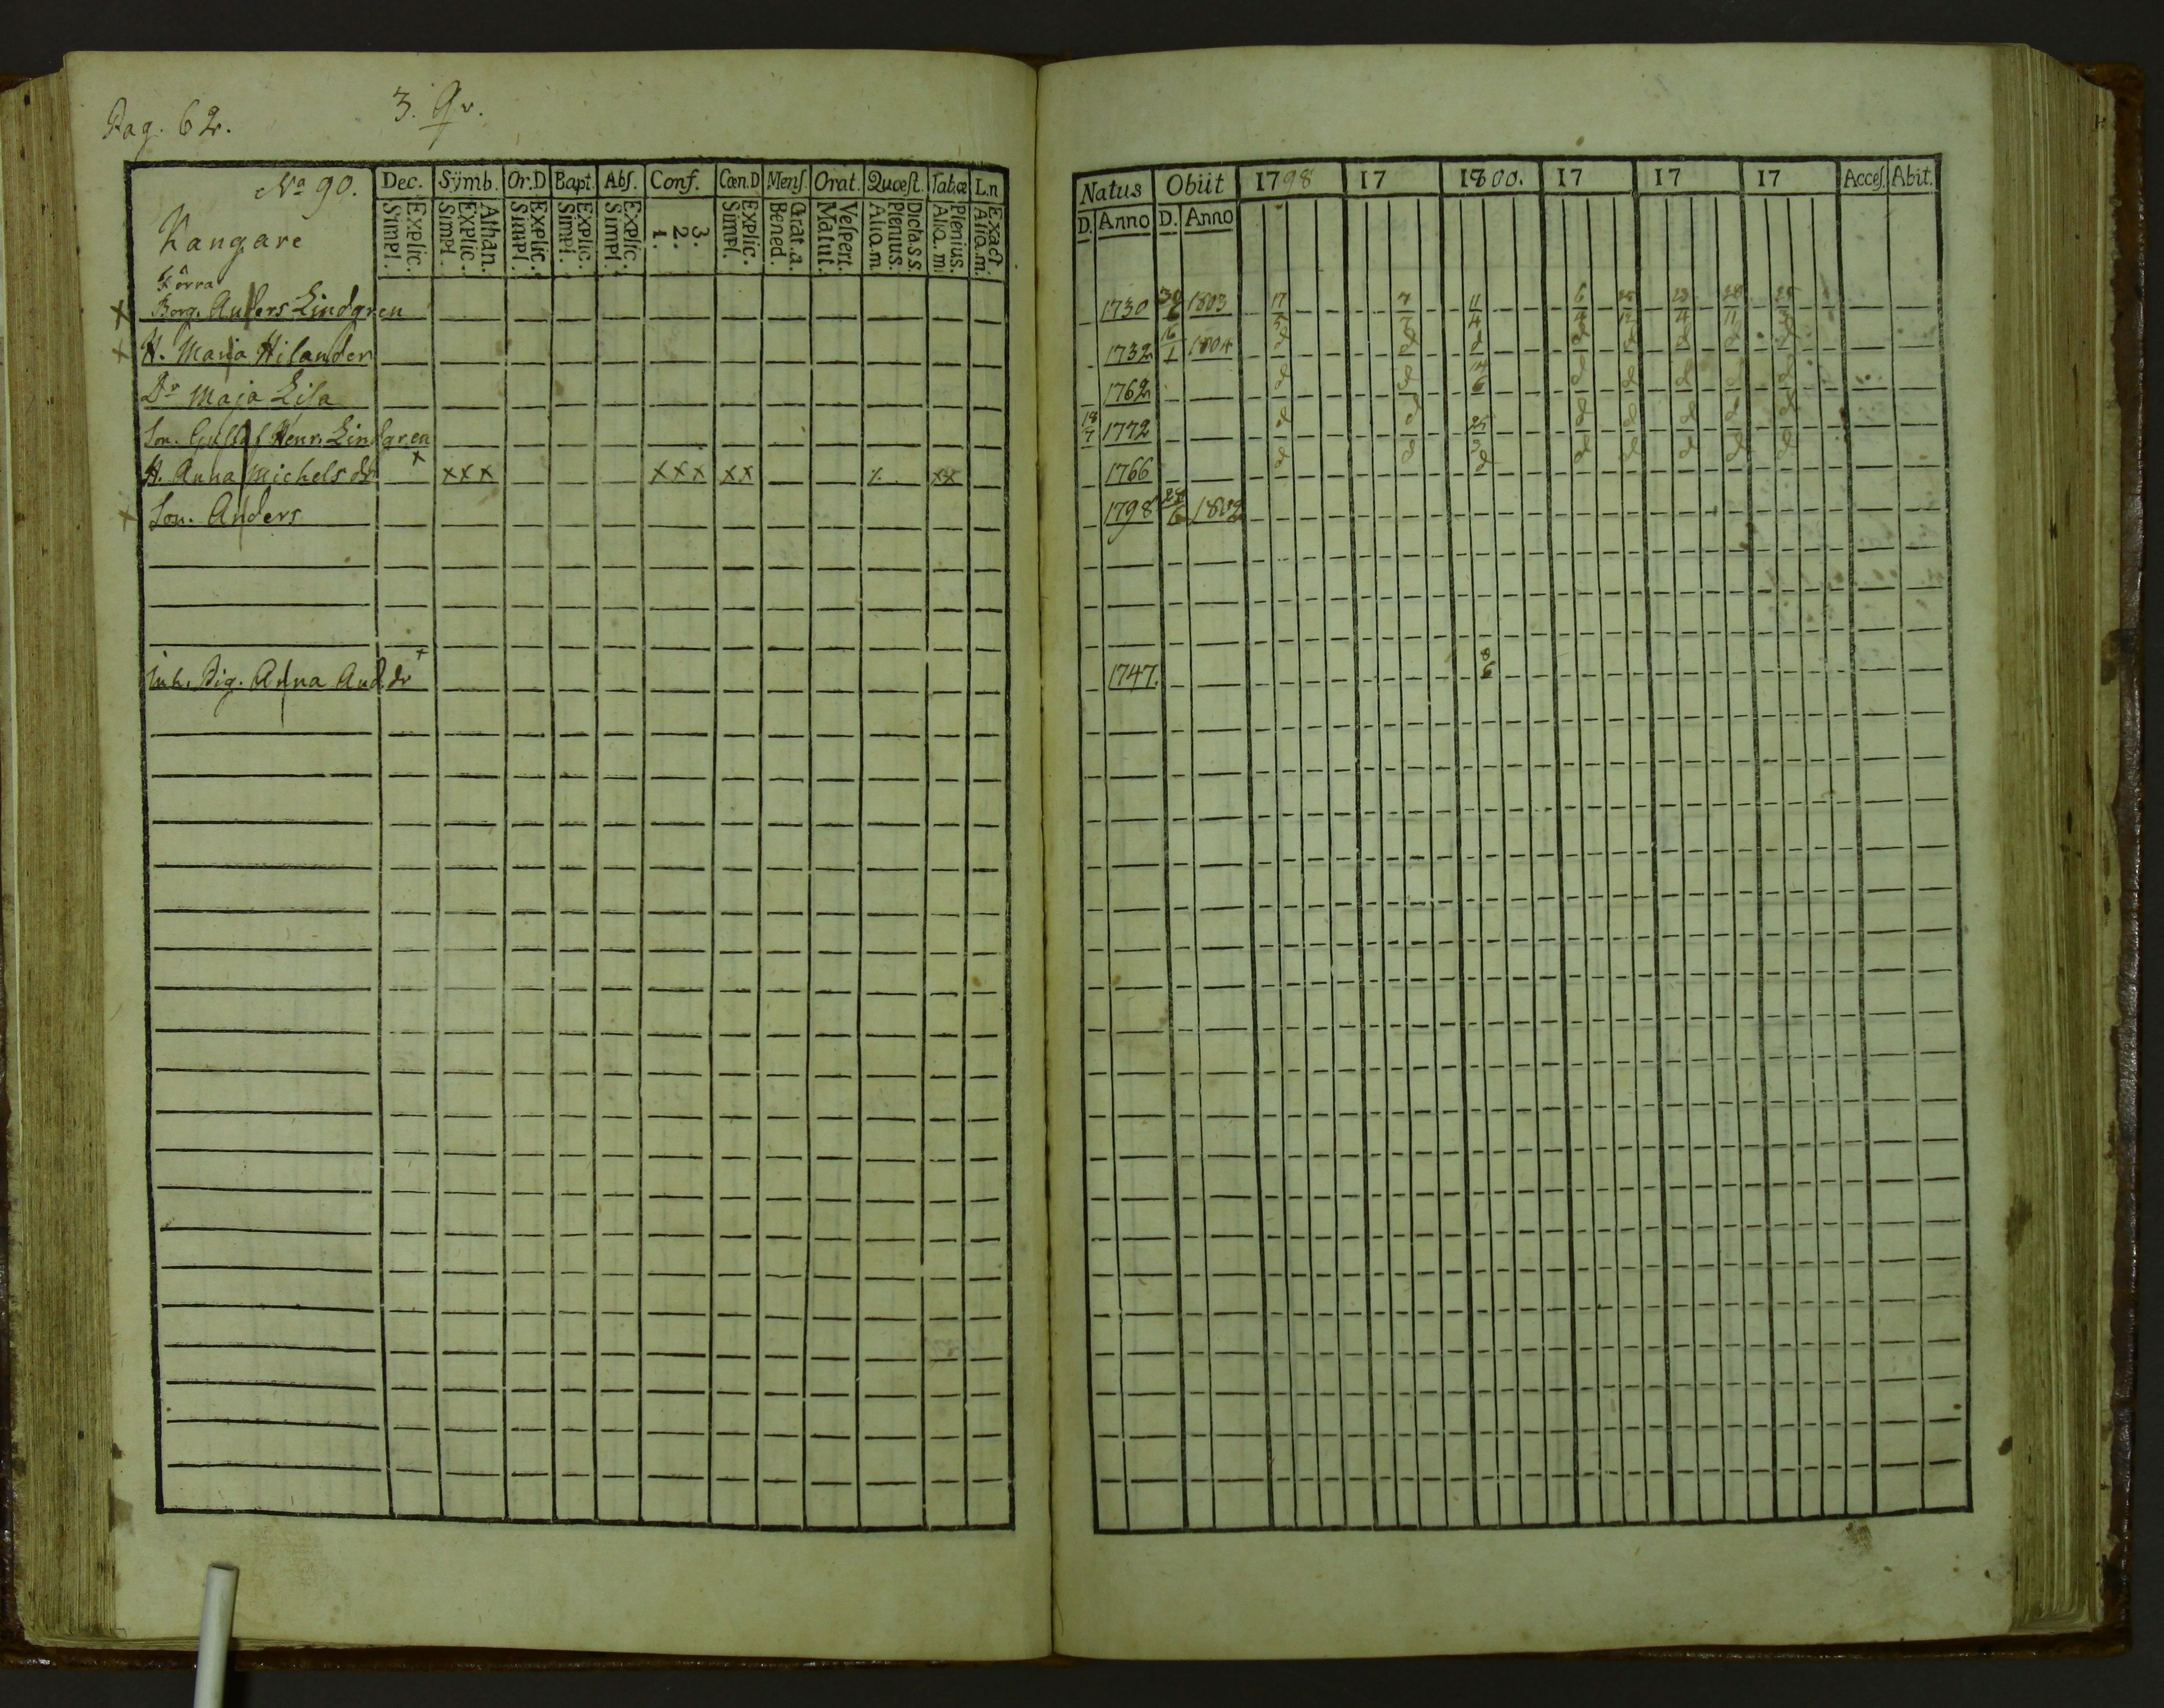 Pag. 62.
3. Qv.
No 90.
Kangare
Dec. Symb. Or.D Bapt. Abſ. Conf. Cœn.D Menſ. Orat. Quæſt. Tab.œ L.n
Simpl. Explic. Simpl. Explic. Athan. Simpl. Explic. Simpl. Explic. Simpl. Explic. 1. 2. 3. Simpl. Explic. Bened. Grat.a. Matut. Veſpert. Alia.m Plenius. Dicta.s.s Alia.m. Plenius. Alia.m. Exact.
förra
Borg. Anders Lindgren
H. Maria Hilander
Dr Maja Lisa
Son. Gustaf Henr. Lindgren
H. Anna Michelsdr + xxx xxx xx xx
Son. Anders
Inh. Pig. Anna And.dr +
Natus Obiit 1798 17 1800. 17 17 17 Acceſ. Abit.
D. Anno D. Anno
1730 30/6 1803 17/5 7/7 11/4 6/4 4 11
1732 16/1 1804 d d d d d d d d
1762 d d 14/6 d d d d d
18/7 1772 d d 25/3 d d d d d
1766 d d d d d d d d
1798 6 1802
1747. 8/6